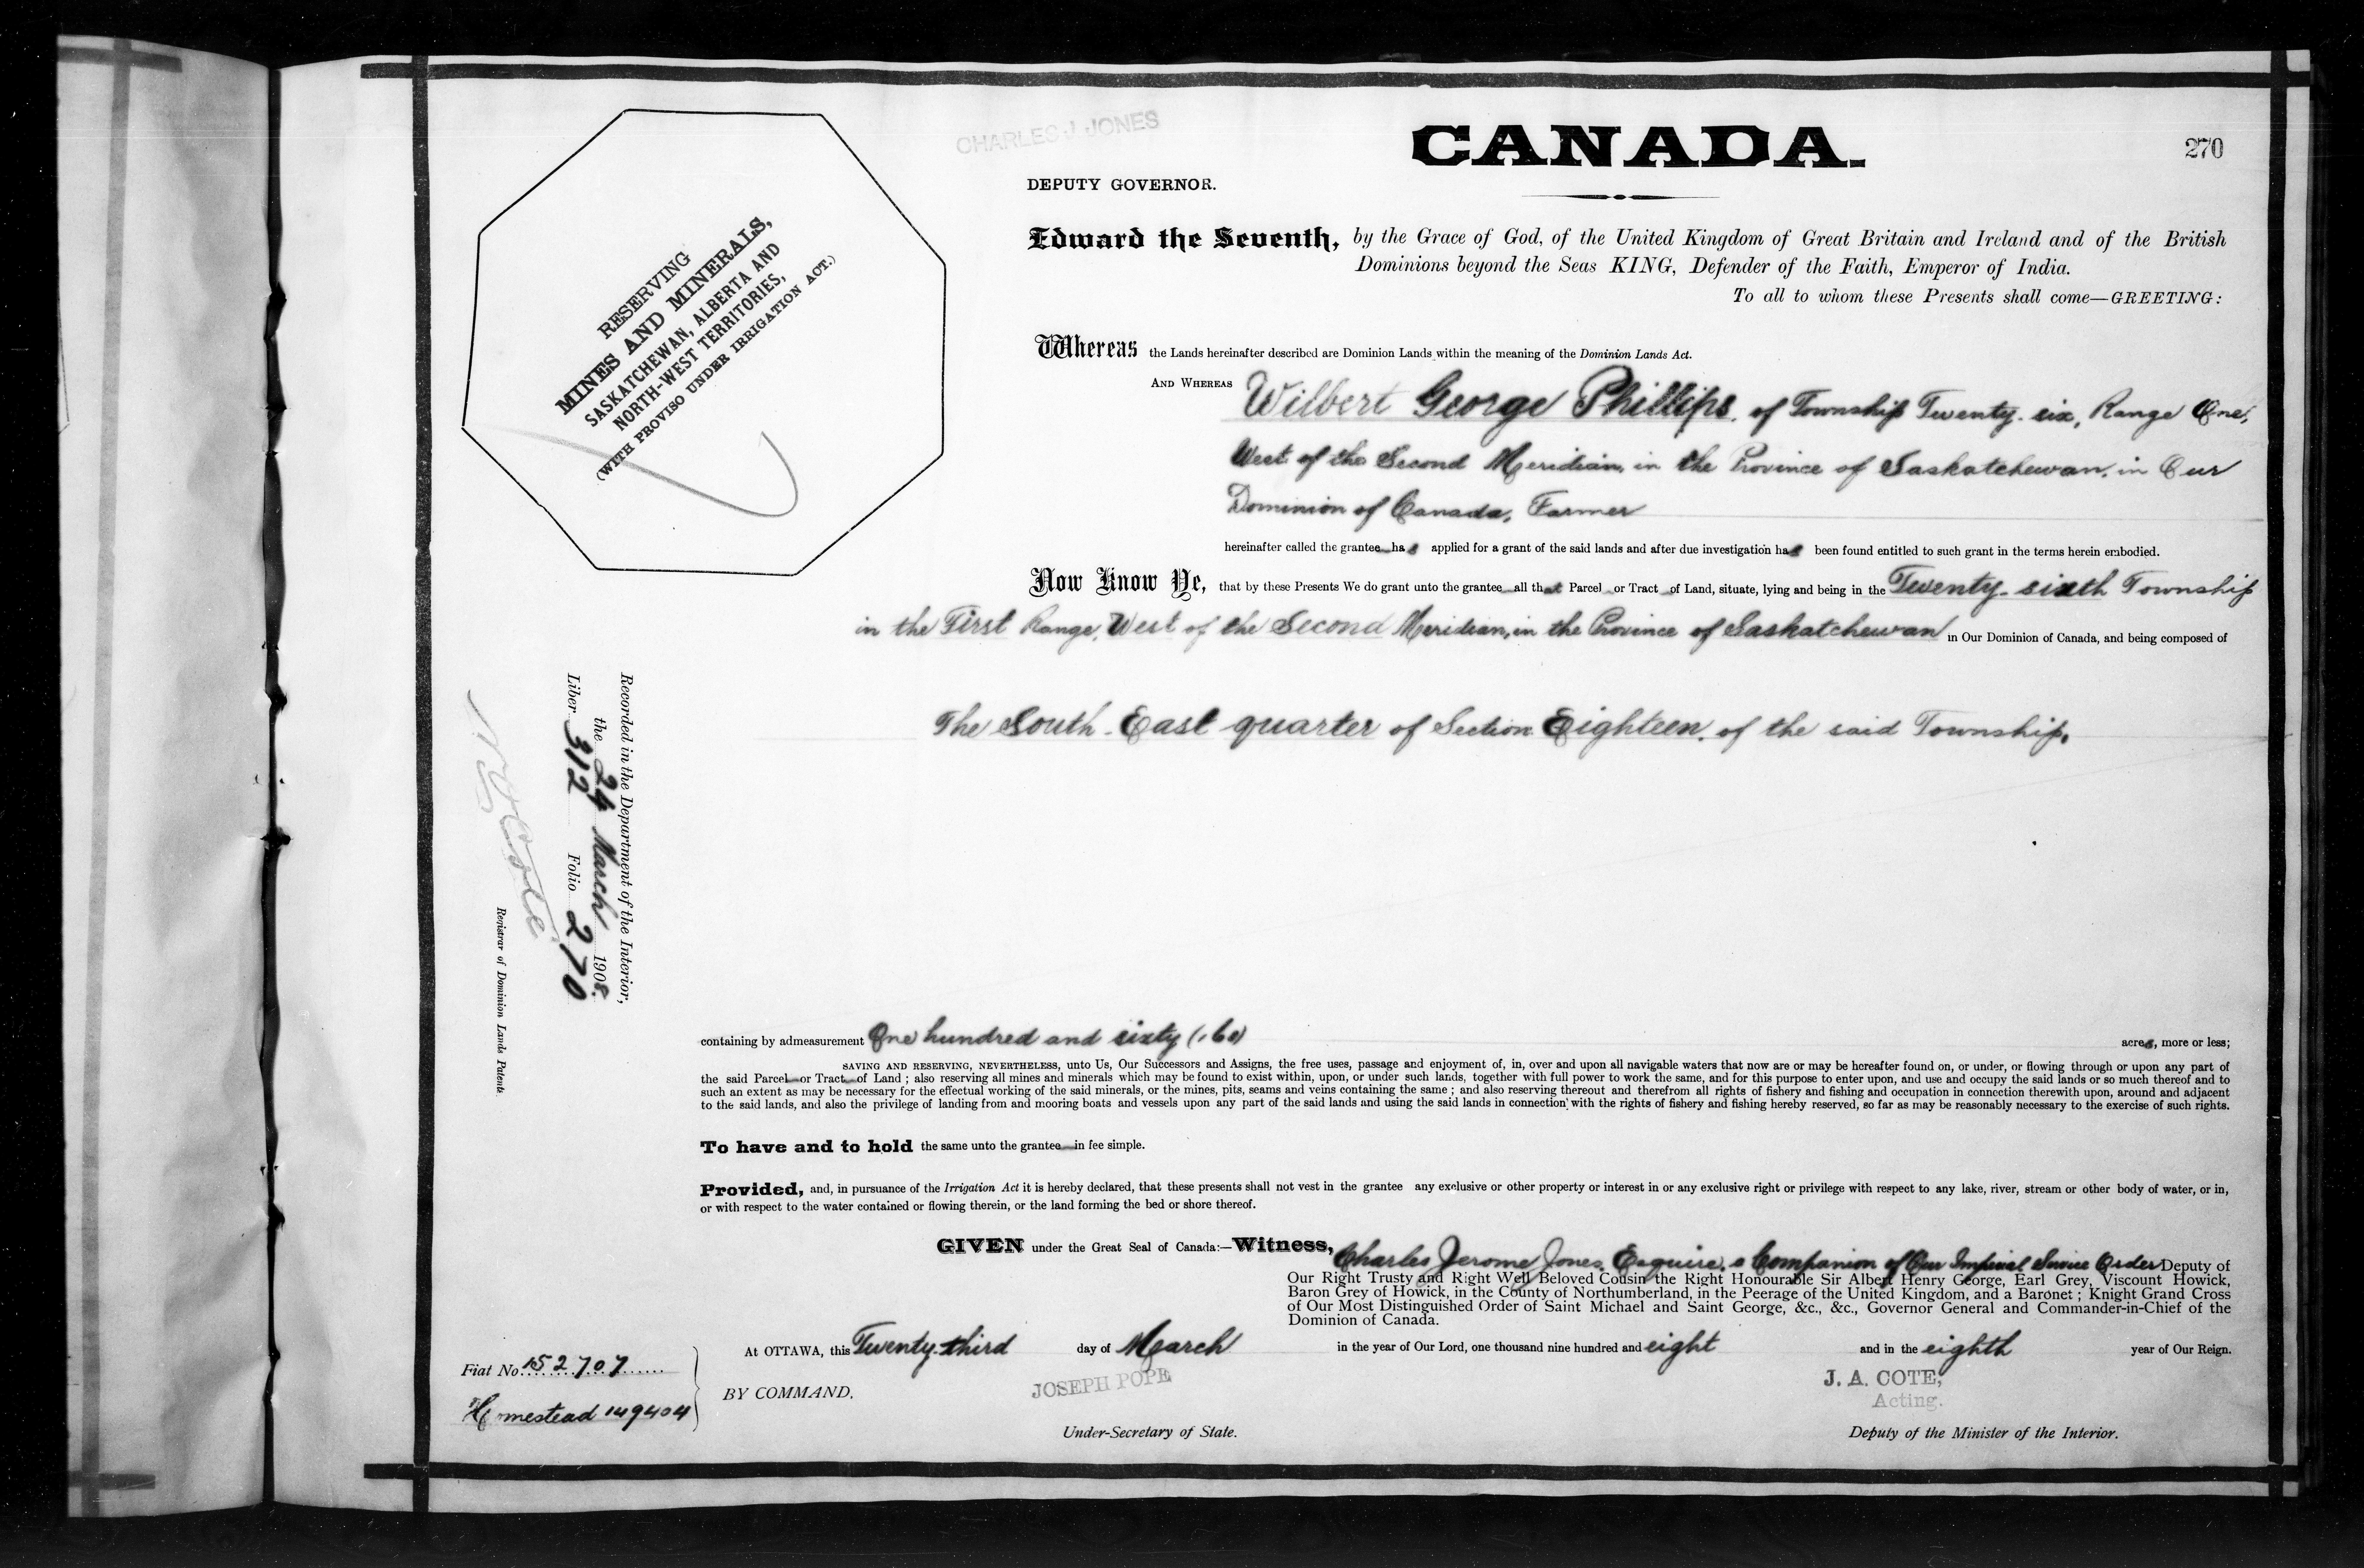 CHARLES J JONES
CANADA.
270
DEPUTY GOVERNOR.
Edward the Seventh, by the Grace of God, of the United Kingdom of Great Britain and Ireland and of the British
Dominions beyond the Seas KING, Defender of the Faith, Emperor of India.
To all to whom these Presents shall come—GREETING:
RESERVING
MINES AND MINERALS,
SASKATCHEWAN, ALBERTA AND
NORTH-WEST TERRITORIES,
(WITH PROVISO UNDER IRRIGATION ACT.)
Whereas the Lands hereinafter described are Dominion Lands within the meaning of the Dominion Lands Act.
AND WHEREAS Wilbert George Phillips, of Township Twenty-six, Range One,
West of the Second Meridian, in the Province of Saskatchewan, in Our
Dominion of Canada, Farmer
hereinafter called the grantee has applied for a grant of the said lands and after due investigation has been found entitled to such grant in the terms herein embodied.
Now Know Ye, that by these Presents We do grant unto the grantee all that Parcel or Tract of Land, situate, lying and being in the Twenty-sixth Township
in the First Range, West of the Second Meridian, in the Province of Saskatchewan in Our Dominion of Canada, and being composed of
The South-East quarter of Section Eighteen, of the said Township.
Recorded in the Department of the Interior,
the 24 March 1908.
Liber 312 Folio 270
Cote
Registrar of Dominion Lands Patents.
containing by admeasurement One hundred and sixty (160) acres, more or less;
SAVING AND RESERVING, NEVERTHELESS, unto Us, Our Successors and Assigns, the free uses, passage and enjoyment of, in, over and upon all navigable waters that now are or may be hereafter found on, or under, or flowing through or upon any part of
the said Parcel or Tract of Land ; also reserving all mines and minerals which may be found to exist within, upon, or under such lands, together with full power to work the same, and for this purpose to enter upon, and use and occupy the said lands or so much thereof and to
such an extent as may be necessary for the effectual working of the said minerals, or the mines, pits, seams and veins containing the same ; and also reserving thereout and therefrom all rights of fishery and fishing and occupation in connection therewith upon, around and adjacent
to the said lands, and also the privilege of landing from and mooring boats and vessels upon any part of the said lands and using the said lands in connection with the rights of fishery and fishing hereby reserved, so far as may be reasonably necessary to the exercise of such rights.
To have and to hold the same unto the grantee in fee simple.
Provided, and, in pursuance of the Irrigation Act it is hereby declared, that these presents shall not vest in the grantee any exclusive or other property or interest in or any exclusive right or privilege with respect to any lake, river, stream or other body of water, or in,
or with respect to the water contained or flowing therein, or the land forming the bed or shore thereof.
GIVEN under the Great Seal of Canada:—Witness, Charles Jerome Jones, Esquire, a Companion of Our Imperial Service Order Deputy of
Our Right Trusty and Right Well Beloved Cousin the Right Honourable Sir Albert Henry George, Earl Grey, Viscount Howick,
Baron Grey of Howick, in the County of Northumberland, in the Peerage of the United Kingdom, and a Baronet ; Knight Grand Cross
of Our Most Distinguished Order of Saint Michael and Saint George, &c., &c., Governor General and Commander-in-Chief of the
Dominion of Canada.
At OTTAWA, this Twenty-third day of March in the year of Our Lord, one thousand nine hundred and eight and in the eighth year of Our Reign.
Fiat No. 152707
Homestead 149404
BY COMMAND.
JOSEPH POPE
Under-Secretary of State.
J. A. COTE,
Acting.
Deputy of the Minister of the Interior.